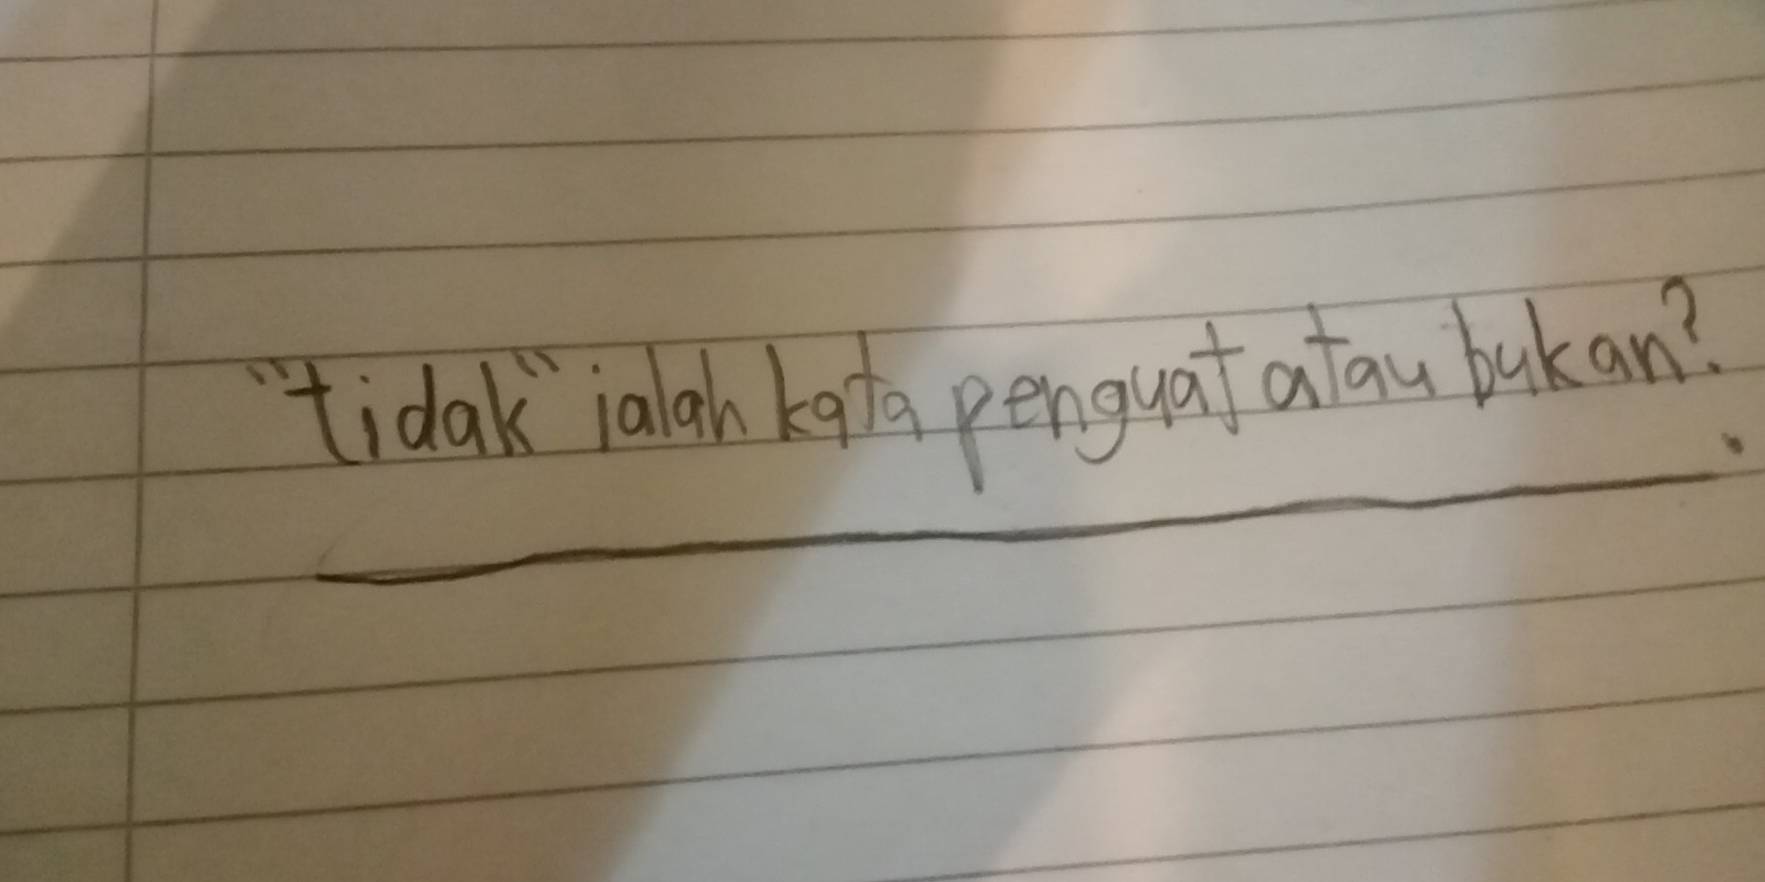 "tidak" ialah kata penguat atau bukan?